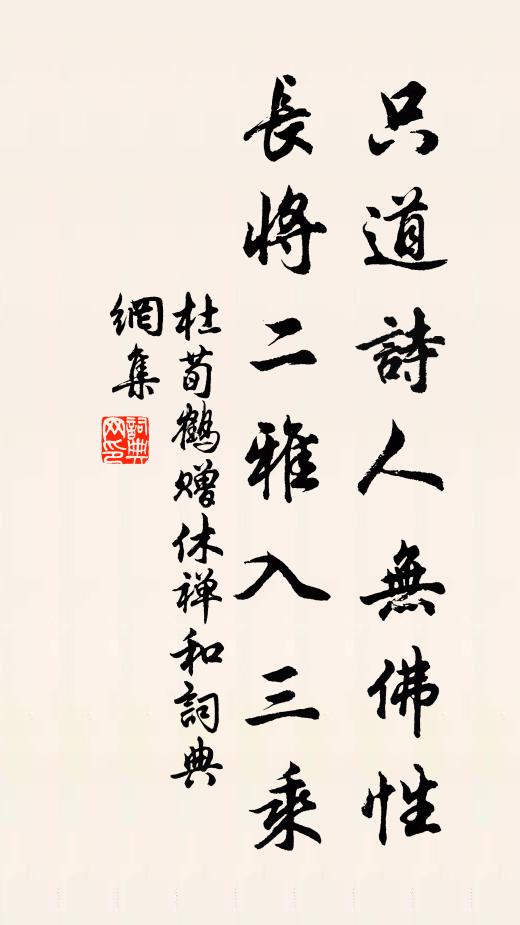 只道詩人無佛性
長將二雅入三乘
杜荀鶴赠休禅和詞典
網集
詞典网印